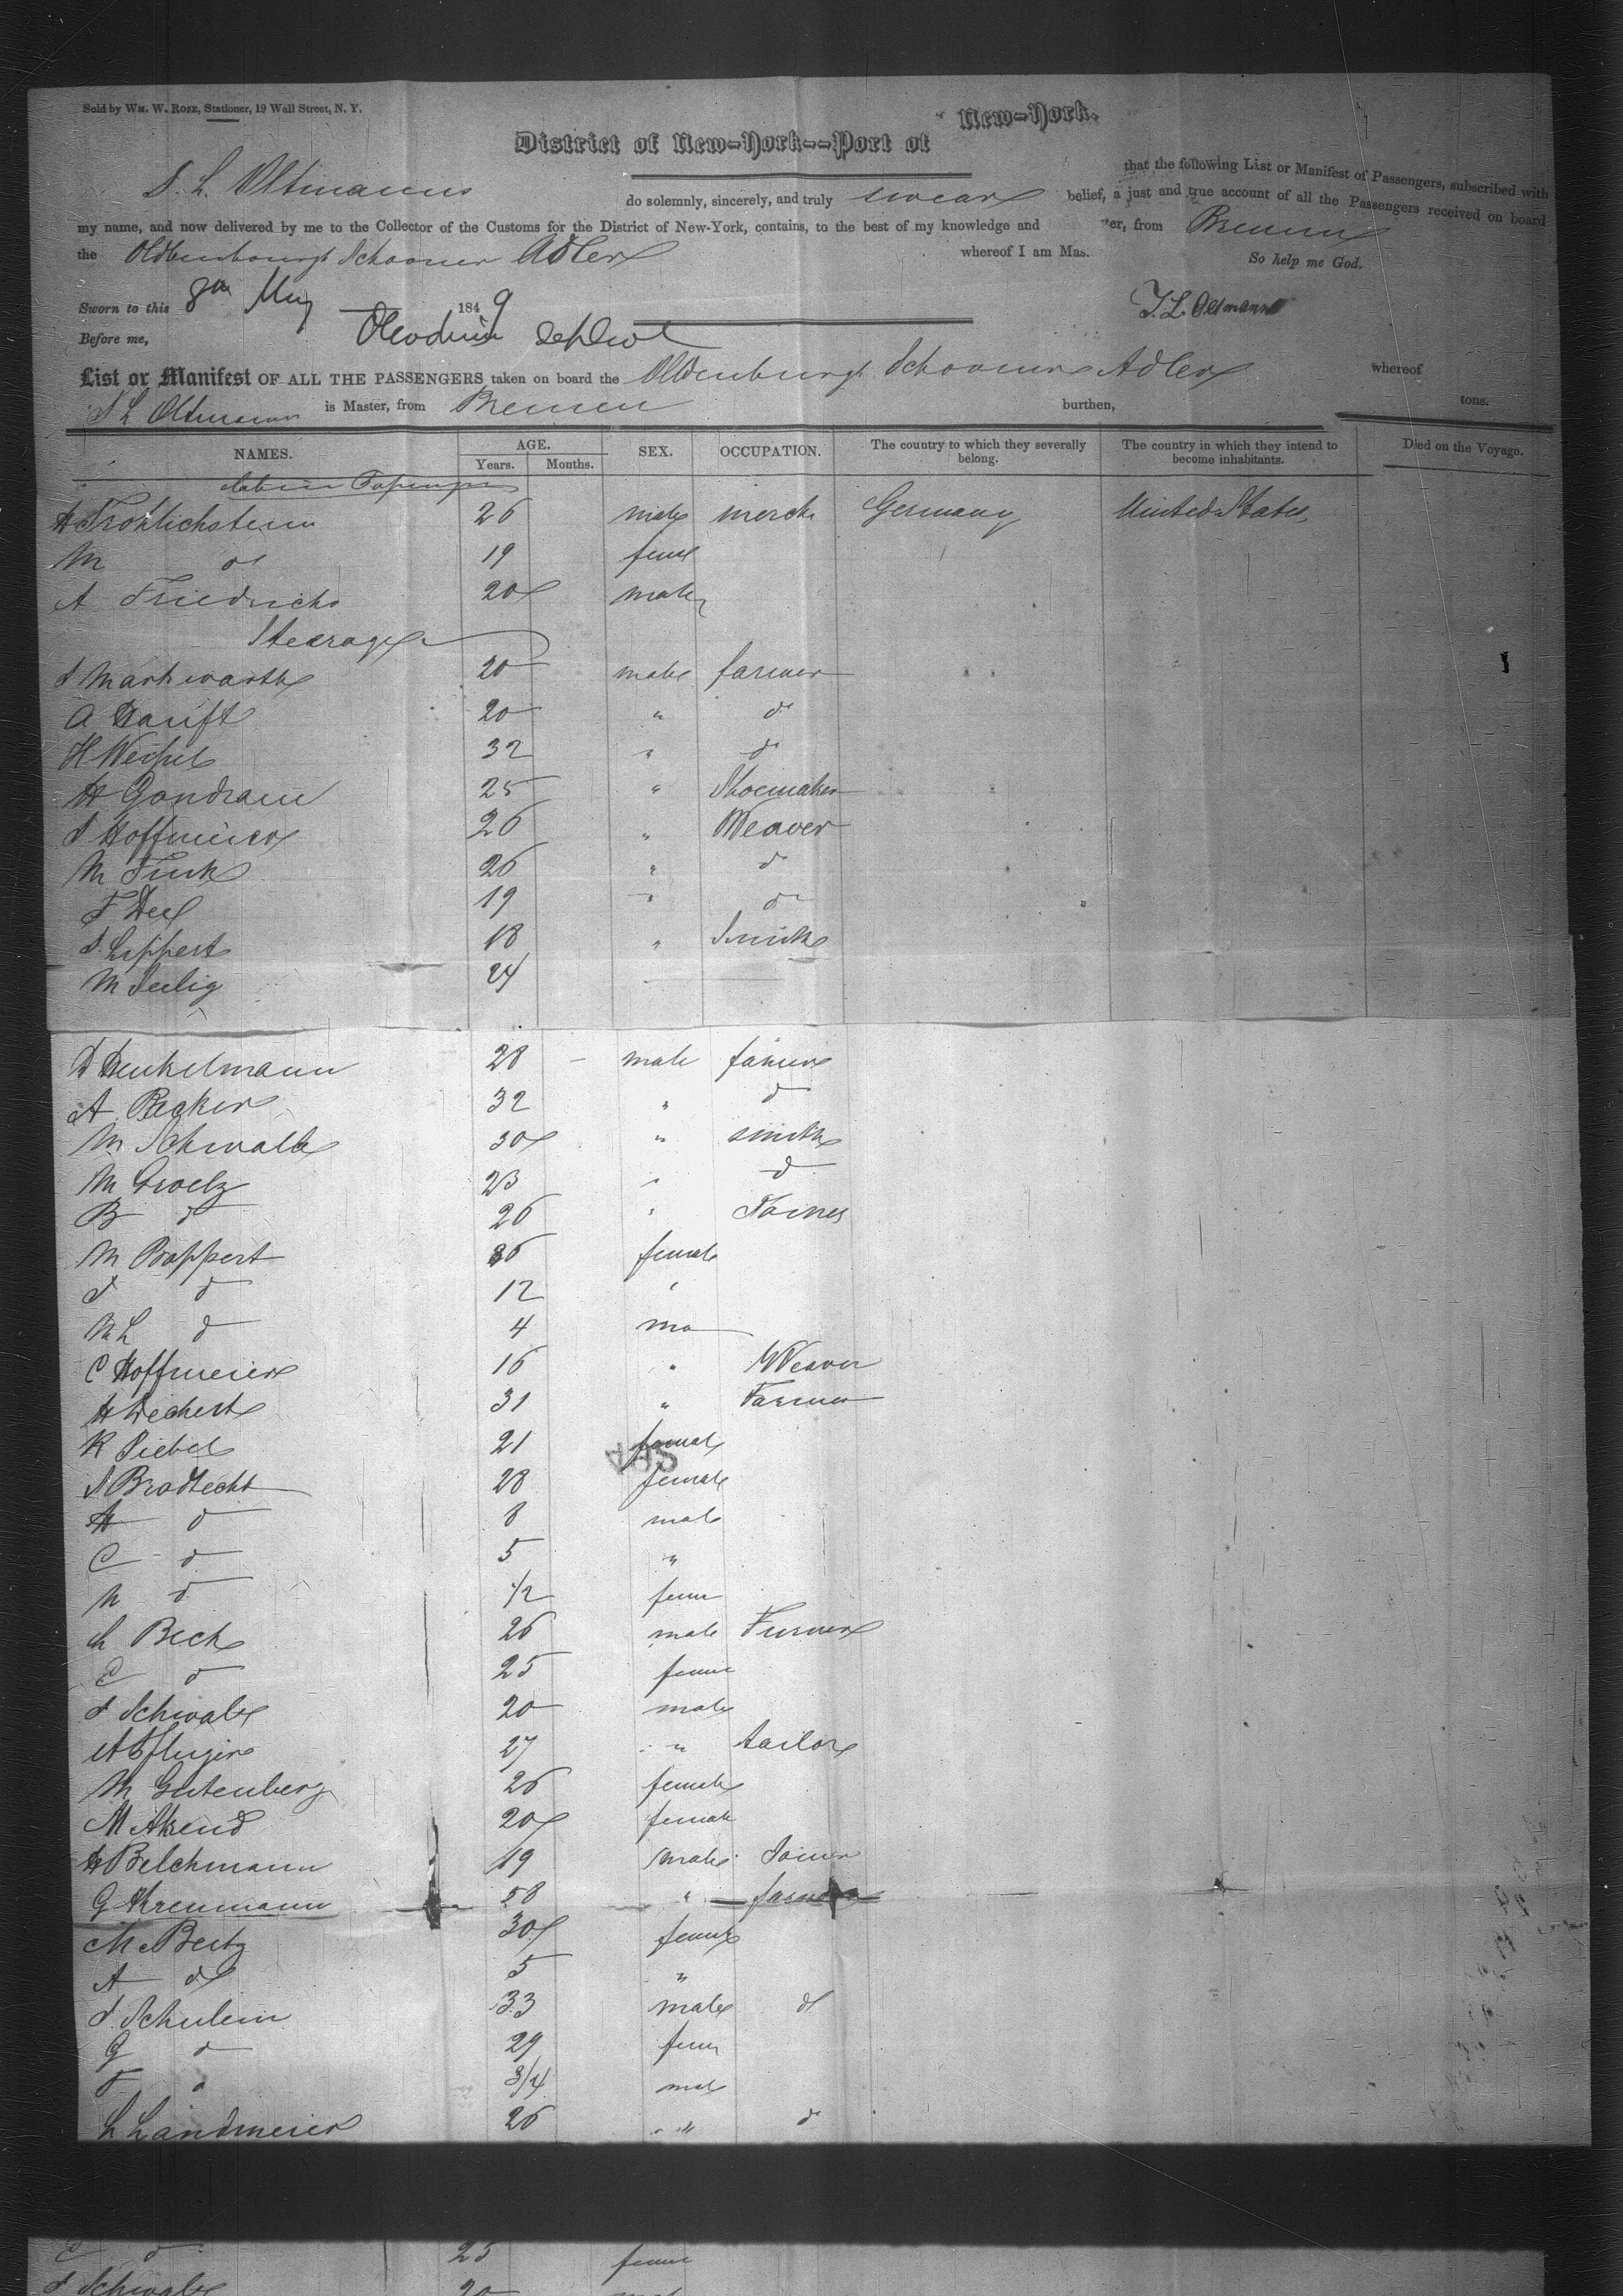 Sold by Wm. W. Rose, Stationer, 19 Wall Street, N. Y.
District of New-York--Port of New-York.
J. L. Oltmanns do solemnly, sincerely, and truly swear that the following List or Manifest of Passengers, subscribed with
my name, and now delivered by me to the Collector of the Customs for the District of New-York, contains, to the best of my knowledge and belief, a just and true account of all the Passengers received on board
the Oldenbourgh Schooner Adler whereof I am Master, from Bremen
So help me God.
Sworn to this 8th May 1849 J. L. Oltmanns
Before me,
List or Manifest OF ALL THE PASSENGERS taken on board the Oldenburgh Schooner Adler whereof
J L Oltmanns is Master, from Bremen burthen, tons.
NAMES. AGE. SEX. OCCUPATION. The country to which they severally belong. The country in which they intend to become inhabitants. Died on the Voyage.
Years. Months.
Cabin Passengers
H Frohlichstein 26 male merch Germany United States
M do 19 feme
A Friedrichs 20 male
Steerage
J Markwarth 20 male farmer
A Hanft 20 " do
H 32 " do
H Gondram 25 " Shoemaker
J Hoffmeier 26 " Weaver
M Funk 26 " do
F Deel 19 " do
J. Lippert 18 " Smith
M Seelig 24
D Denkelmann 28 male farmer
A Becker 32 " d
M Schwalb 30 " smith
M Groelz 23 " d
B d 26 " Joiner
M Poppert 36 female
J d 12 "
M L d 4 ma
C Hoffmeier 16 " Weaver
H Dechert 31 " Farmer
K Siebel 21 female
J Brodtecht 28 female
H d 8 male
C d 5 "
M d 1/2 fem
L Beck 26 male Farmer
E d 25 feme
J Schwalb 20 male
A Pfluger 27 " tailor
M Gutenberg 26 female
M Akend 20 female
H Belchmann 19 male Joiner
G Krenmann 58 " farmer
M Bertz 30 female
A do 5 "
J. Schulein 33 male do
G d 29 fem
F d 3/4 mal
L Landmeier 26 " d
E d 25 feme
J Schwalb 20 male